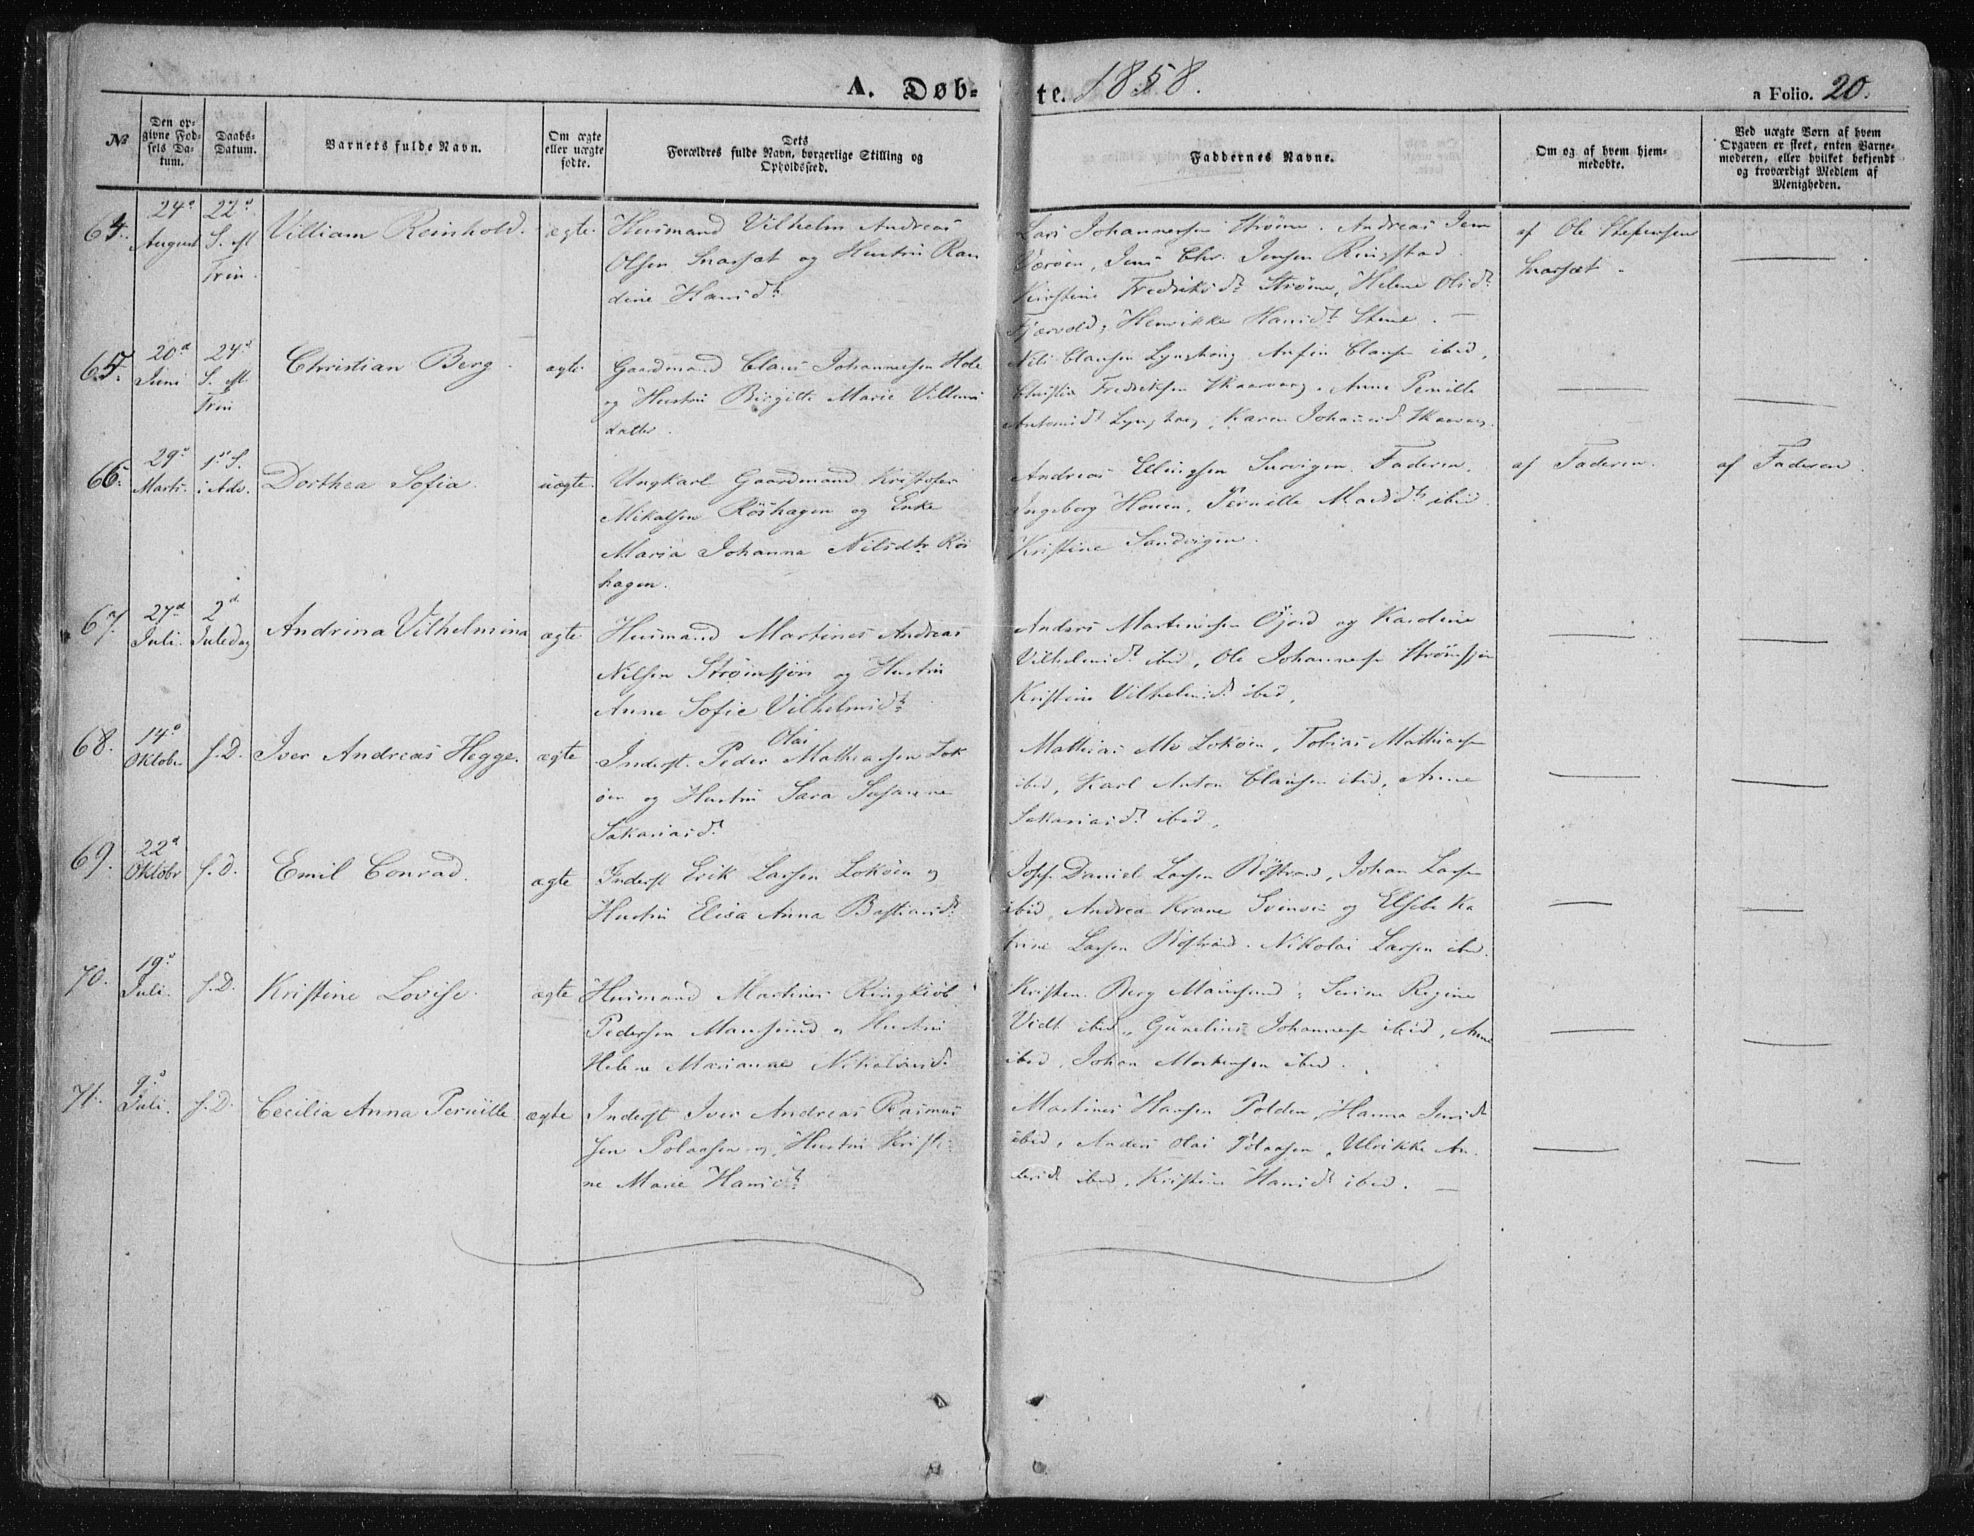 A. Døb- te. 1858. a Folio. 20.
№
Den opgivne Fødsels Datum.
Daabs-Datum.
Barnets fulde Navn.
Om ægte eller uægte fødte.
Dets Forældres fulde Navn, borgerlige Stilling og Opholdssted.
Faddernes Navne.
Om og af hvem hjemmedøbte.
Ved uægte Børn af hvem Opgaven er skeet, enten Barnemoderen, eller hvilket bekjendt og troværdigt Medlem af Menigheden.
64. 24de August 22de S. eft Trin. Villiam Reinhold. ægte.
Husmand Vilhelm Andreas
Olsen Snarsæt og Hustru Ran
dine Hansdtr
Lars Johannesen Strøm. Andreas Jens
Værøen, Jens Chr. Jensen Ringstad
Kirstine Fredriksdtr Strøm, Helene Olsdtr
Fjærvold, Henrikke Hansdtr Stene. —
af Ole Stefensen
Snarsæt.
65. 20de Juni 24de S. eft Trin Christian Berg. ægte.
Gaardmand Claus Johannesen Hole
og Hustru Birgitte Marie Villums
datter.
Nils Clausen Lynghoug, Anfin Claus ibid,
Christen Fredriksen Skaarvaag, Anne Pernille
Antonidtr Lynghoug, Karen Johansd Skaarvaag.
66. 29de Marts. 1ste S. i Adv. Dorthea Sofia. uægte.
Ungkarl Gaardmand Kristofer
Mikalsen Röshagen og Enke
Maria Johanna Nilsdtr Rös
hagen.
Andreas Ellingsen Survigen. Faderen.
Ingeborg Houen, Pernille Madsdtr ibid.
Kristine Sandvigen.
af Faderen.
af Faderen.
67. 27de Juli. 2d Juledag Andrina Vilhelmina ægte
Husmand Martines Andreas
Nilsen Strømsjøn og Hustru
Anne Sofie Vilhelmsdtr
Anders Martinesen Øjord og Karoline
Vilhelmsdtr ibid, Ole Johannesen Strømsjøn
Kristine Vilhelmsdtr ibid.
68. 14de Oktober s. D. Iver Andreas Hegge. ægte
Inderst. Peder Olai Mathiassen Lok
øen og Hustru Sara Susanne
Sakariasdtr
Mathias Mo Lokøen, Tobias Mathiassen
ibid, Karl Anton Clausen ibid, Anne
Sakariasdtr ibid.
69. 22de Oktobr s. D. Emil Conrad. ægte
Inderst Erik Larsen Lokøen og
Hustru Elisa Anna Bastiansdtr
Daniel Larsen Röstrand, Johan Larsen
ibid, Andrea Krane og Elsebe Ka
trine Larsen Röstrand. Nikolai Larsen ibid.
70. 19de Juli. s. D. Kristine Lovise. ægte
Husmand Martines Ringkiøb
Pedersen Mausund og Hustru
Helene Marianne Nikolaisdtr
Kristen Berg Mausund, Serine Regine
Vidt ibid, Gunelius Johannesen ibid, Anne
ibid, Johan Mortensen ibid.
71. 9de Juli. s. D. Cecilia Anna Pernille ægte
Inderst Iver Andreas Rasmus
sen Polaasen og Hustru Kristi
ne Marie Hansdtr
Martines Hansen Polden, Hanna Jensdtr
ibid, Anders Olai Polaasen, Ulrikke An
dersdt ibid, Kristine Hansdtr ibid. —